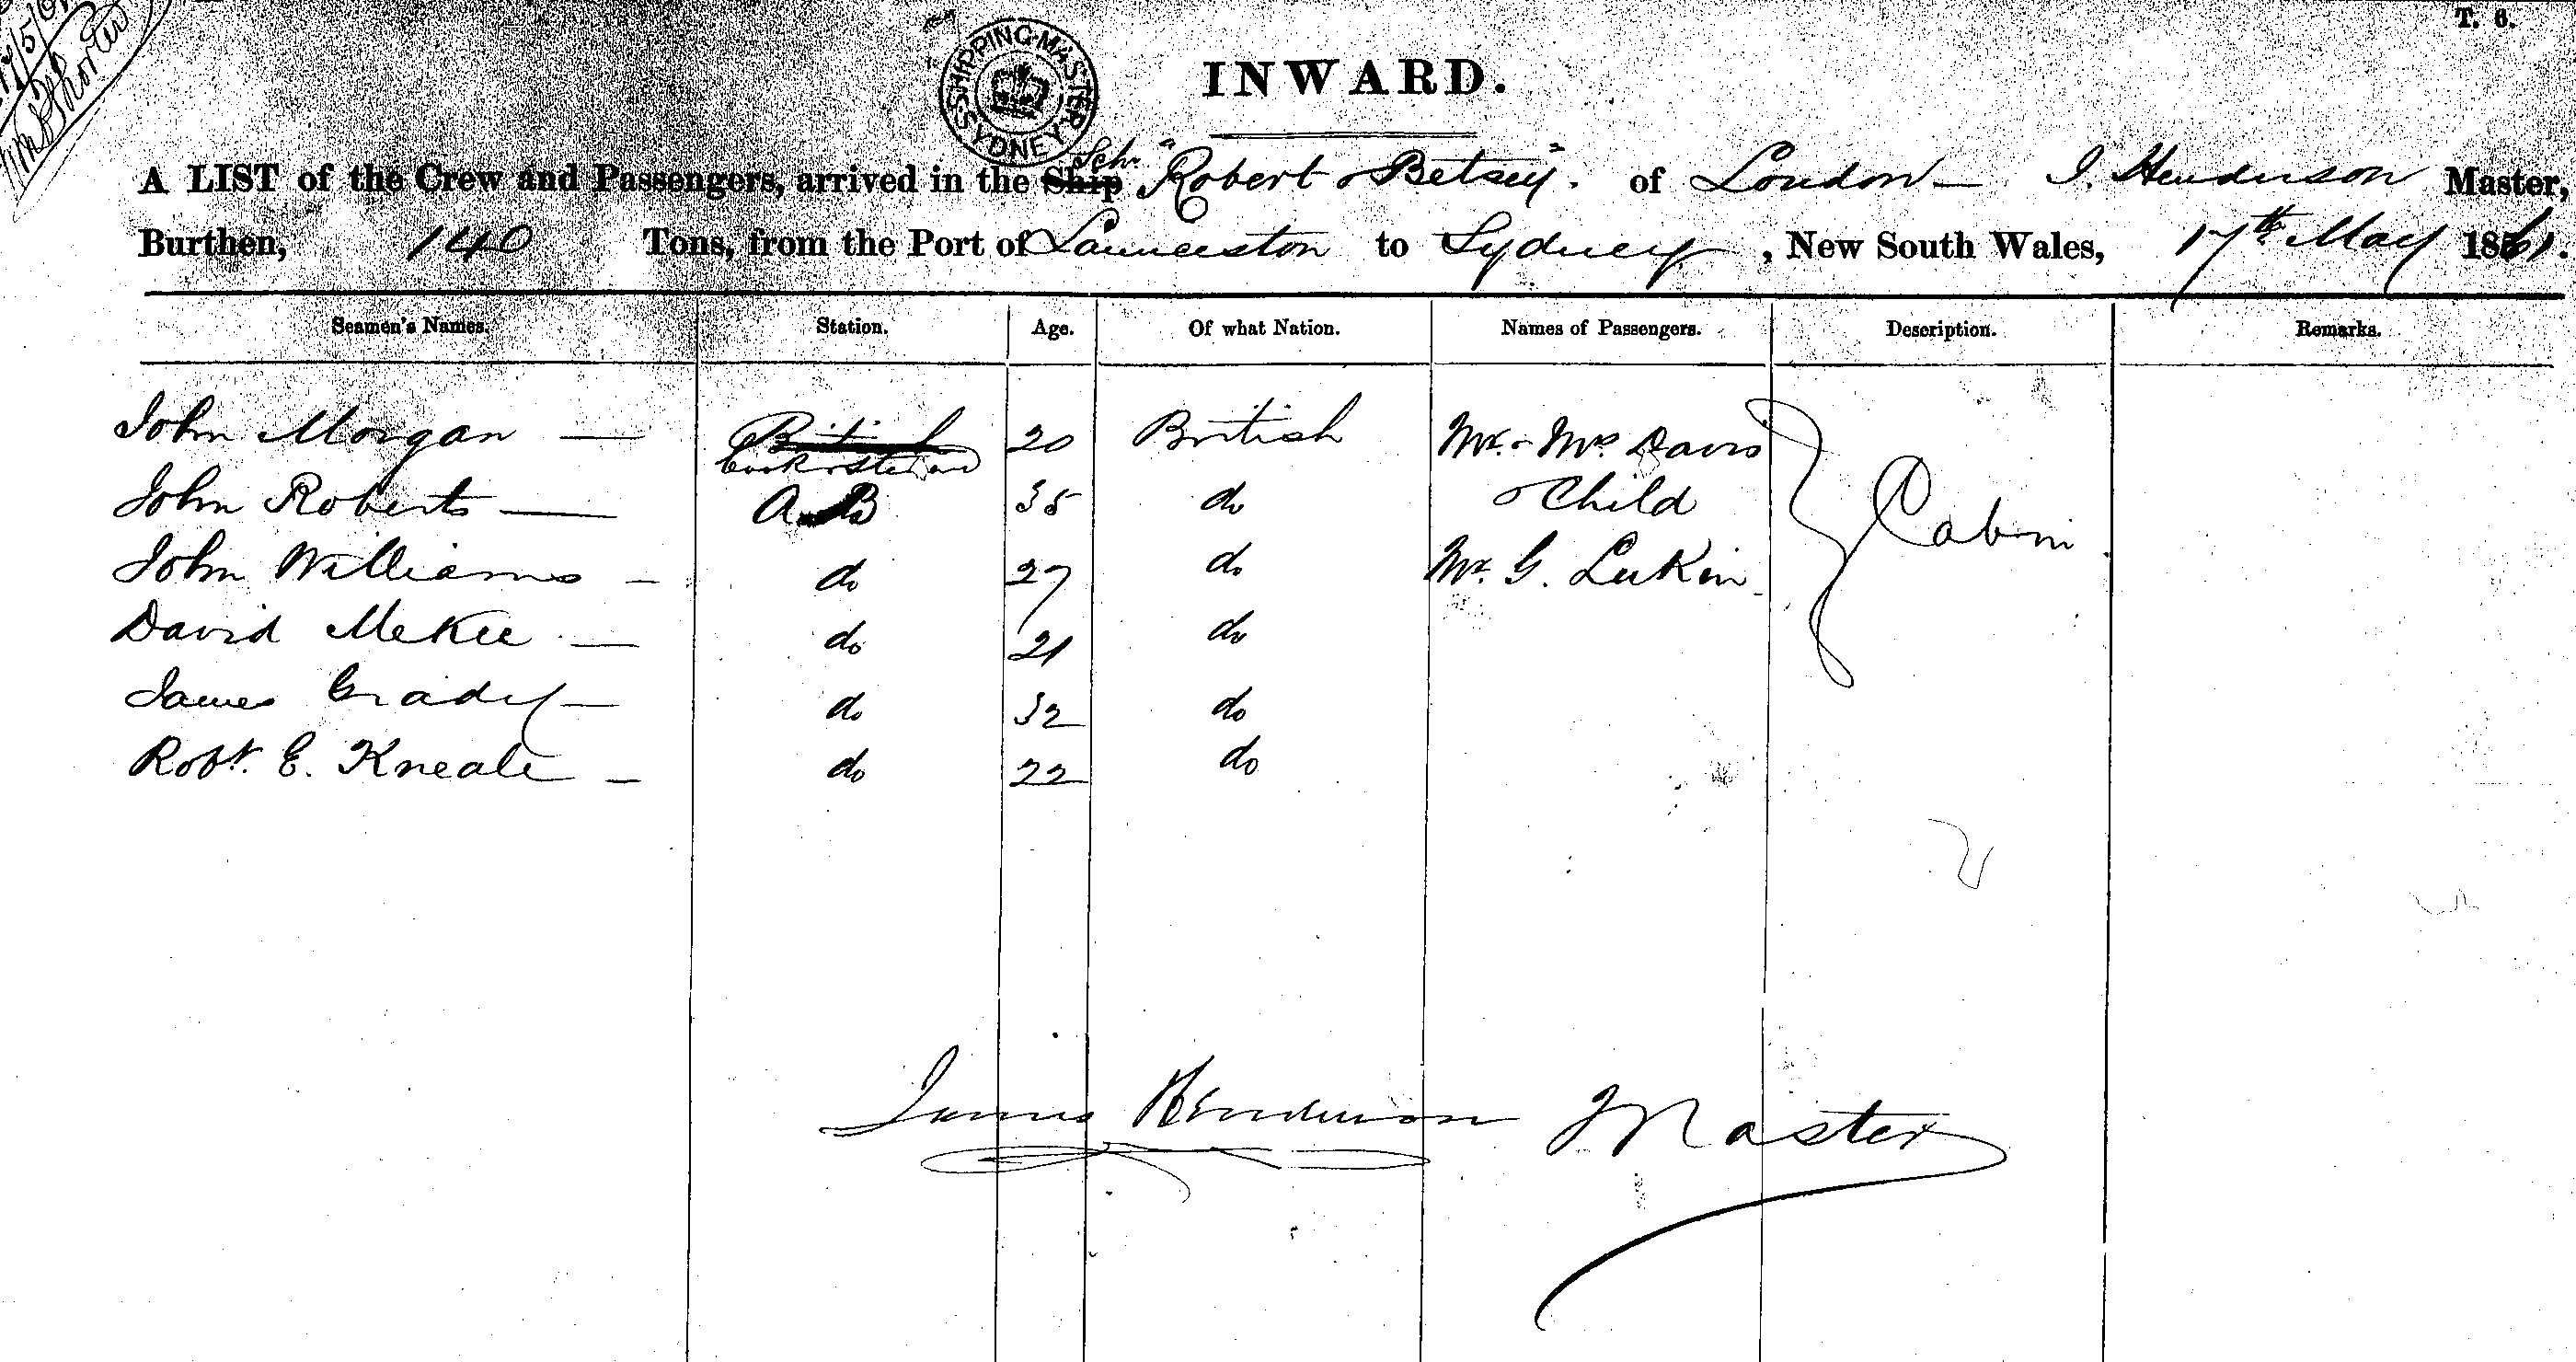 T. 6.
SHIPPING MASTER SYDNEY
INWARD.
A LIST of the Crew and Passengers, arrived in the Ship Schr "Robert & Betsey". of London — J. Henderson Master,
Burthen, 140 Tons, from the Port of Launceston to Sydney, New South Wales, 17th May 1861.
Seamen's Names. Station. Age. Of what Nation. Names of Passengers. Description. Remarks.
John Morgan — British 20 British Mr. & Mrs Davis
Cook & Steward
John Roberts — A.B 35 do & Child Cabin
John Williams — do 27 do Mr. G. Lukin
David McKee — do 21 do
James Grady — do 32 do
Robt. E. Kneale — do 22 do
James Henderson Master